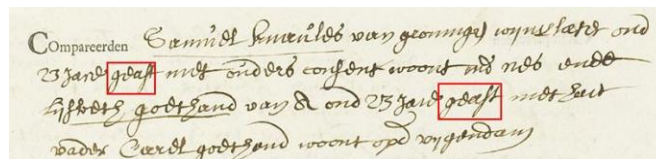 Compareerden Samuel knuules van groninge wijnslater oud
23 Jare geast met ouders consent woont
Lijsbeth goethand van A oud 23 Jare geast met haer
vader Carel goethand woont opd vijgendam